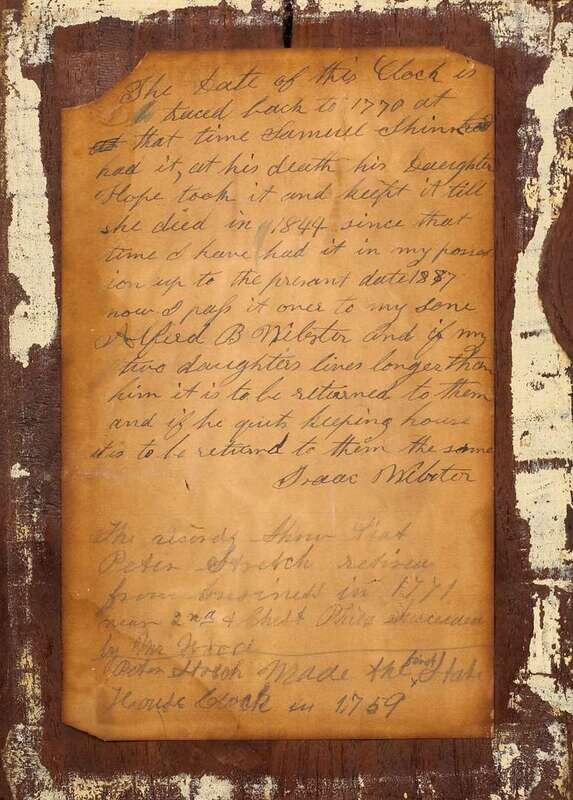 The Date of this Clock is
traced back to 1770 at
that time Samuel Shinn
had it, at his death his Daughter
Hope took it and keept it till
she died in 1844 since that
time I have had it in my posses
ion up to the presant date 1887
now I pass it over to my sone
Alfred B Webster and if my
two daughters lives longer than
him it is to be returned to them
and if he quits keeping house
it is to be returnd to them the same
Isaac Webster
The records Show that
Peter Stretch retired
from business in 1771
near 2nd & Chest Phila succeeded
by
Peter Strech Made the first State
House Clock in 1759